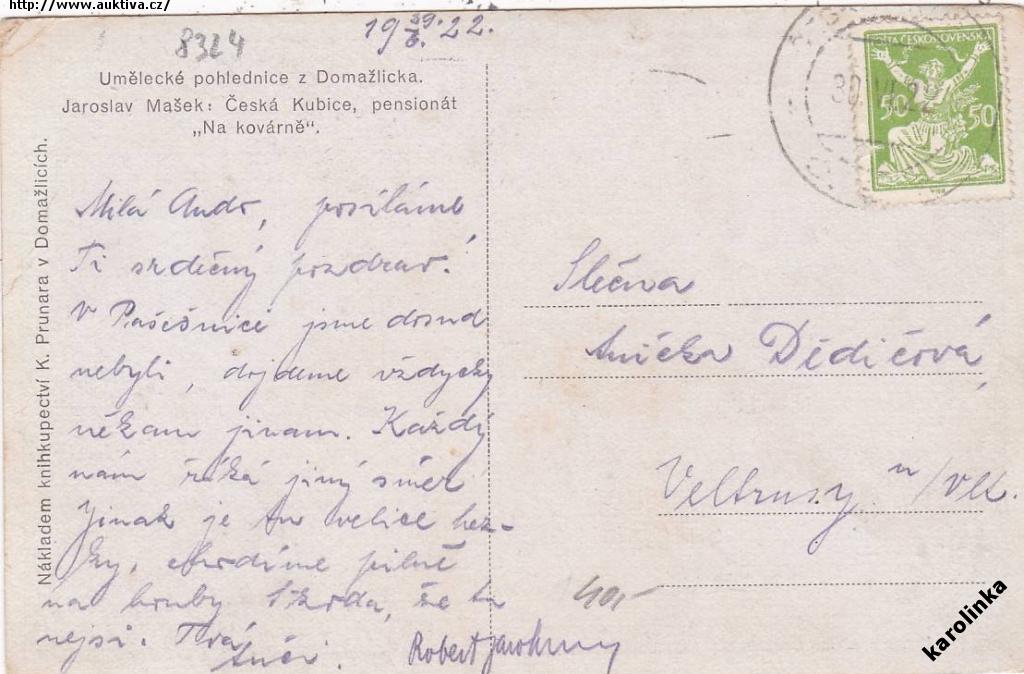 http://www.auktiva.cz/
8324
19 29/6. 22.
Umělecké pohlednice z Domažlicka.
Jaroslav Mašek: Česká Kubice, pensionát
„Na kovárně“.
Nákladem knihkupectví K. Prunara v Domažlicích.
POŠTA ČESKOSLOVENSKÁ
50 50
30.VI.22
Milá Ando, posíláme
Ti srdečný pozdrav!
V Pašešnici jsme dosud
nebyli, dojdeme vždycky
někam jinam. Každý
nám říká jiný směr
Jinak je tu velice hez-
ky, chodíme pilně
na houby Škoda, že tu
nejsi. Tvá
Robert
Slečna
Anička Dědičová,
Veltrusy n/Vlt.
40,-
karolinka